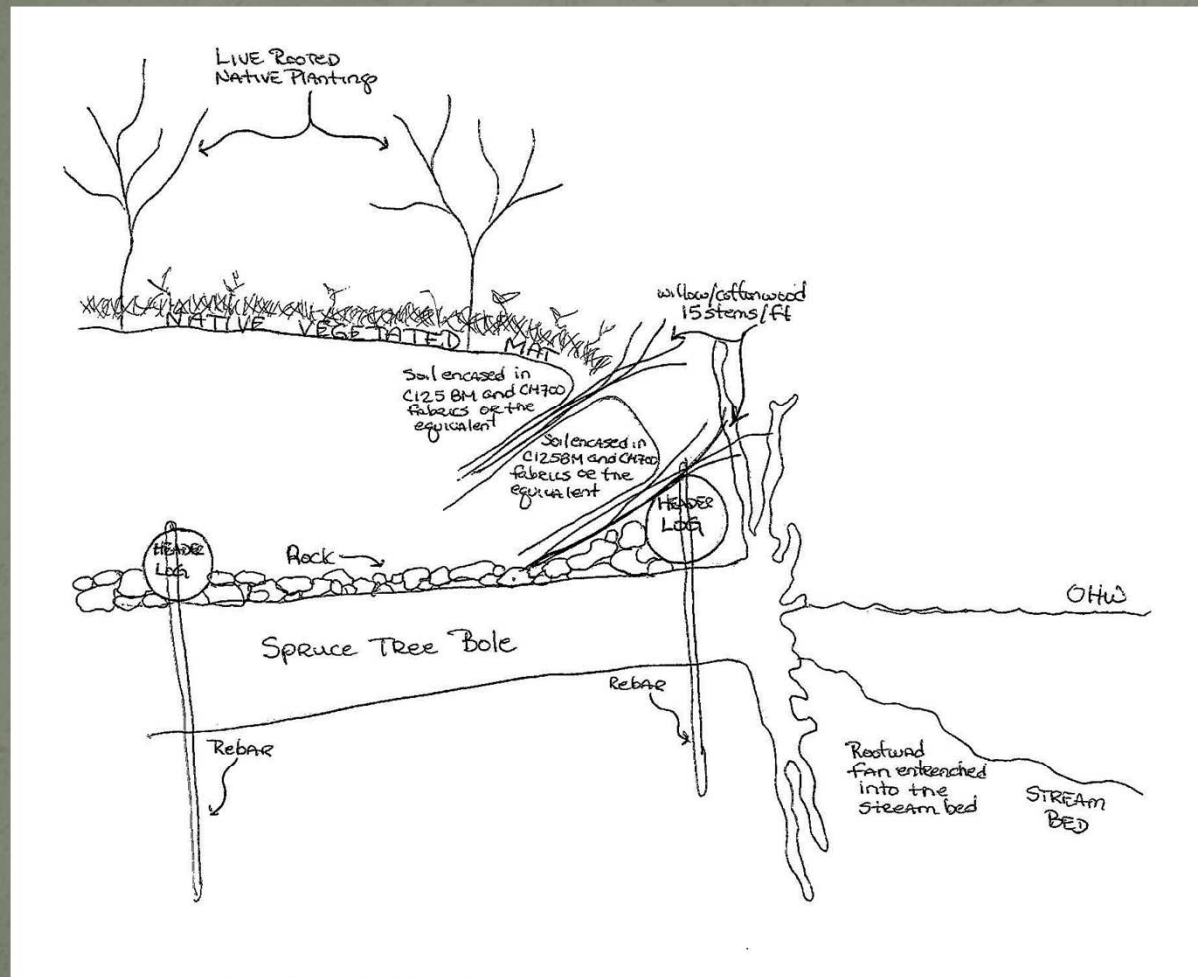 LIVE ROOTED
NATIVE Plantings
willow/cottonwood
15 stems/ft
NATIVE VEGETATED MAT
Soil encased in
C125 BM and CM700
fabrics or the
equivalent
Soil encased in
C125BM and CM700
fabrics or the
equivalent
HEADER
LOG
HEADER
LOG
Rock
OHW
Spruce Tree Bole
Rebar
Rebar
Rootwad
fan entrenched
into the
stream bed
STREAM
BED